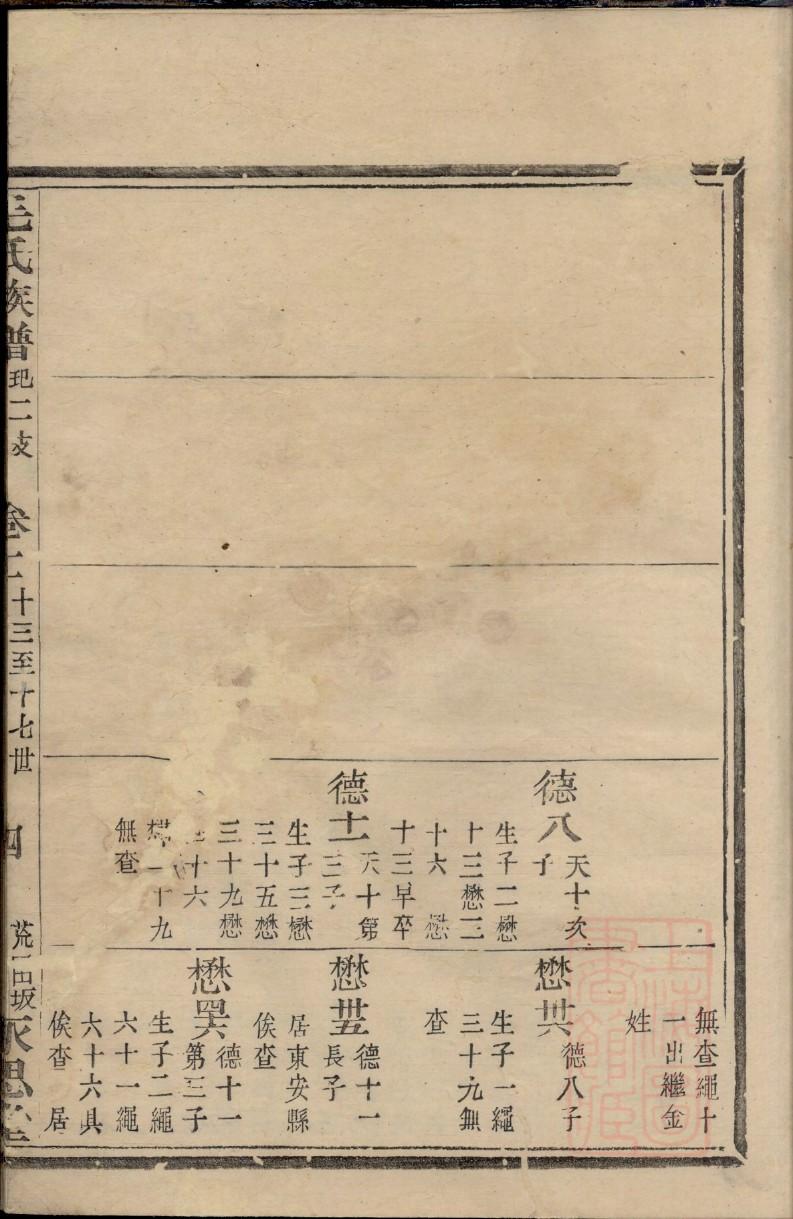 德八
天十次
子
生子二懋
十三懋三
十六　懋
十三早卒
德十一
天十第
三子
生子三懋
三十五懋
三十九懋
十六
十九
無查
無查繩十
一出繼金
姓
懋卅六
德八子
生子一繩
三十九無
查
懋卅五
德十一
長子
居東安縣
俟查
懋四六
德十一
第三子
生子二繩
六十一繩
六十六具
俟查　居
毛氏族譜 玘二支 卷 十三至十七世 四 荒田坂 永思堂
上海圖書館藏